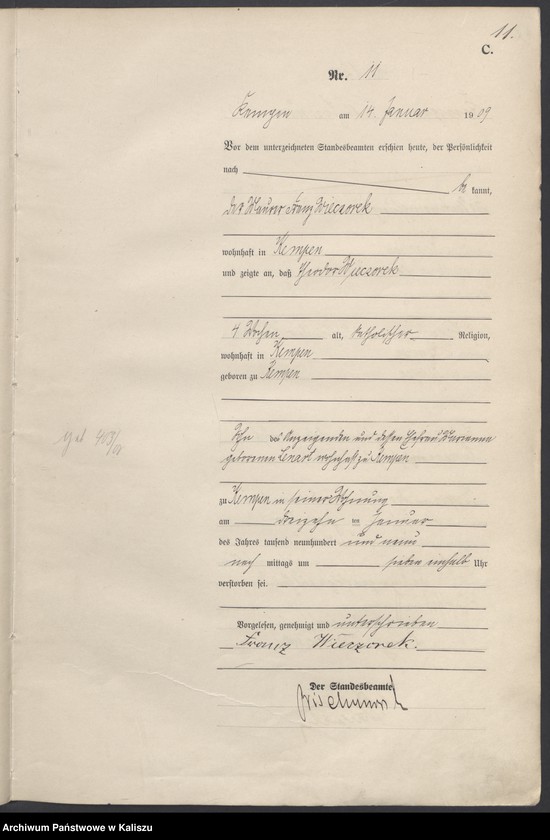 11.
C.
Nr. 11
Kempen am 14. Januar 1909
Vor dem unterzeichneten Standesbeamten erschien heute, der Persönlichkeit
nach be kannt,
der Maurer Franz Wieczorek
wohnhaft in Kempen
und zeigte an, daß Theodor Wieczorek
4 Wochen alt, katholischer Religion,
wohnhaft in Kempen
geboren zu Kempen
Sohn des Anzeigenden und dessen Ehefrau Marianna
geborenen Lenart wohnhaft zu Kempen
zu Kempen in seiner Wohnung
am dreizehn ten Januar
des Jahres tausend neunhundert und neun
nach mittags um sieben einhalb Uhr
verstorben sei.
Vorgelesen, genehmigt und unterschrieben
Franz Wieczorek.
Der Standesbeamte
Archiwum Państwowe w Kaliszu